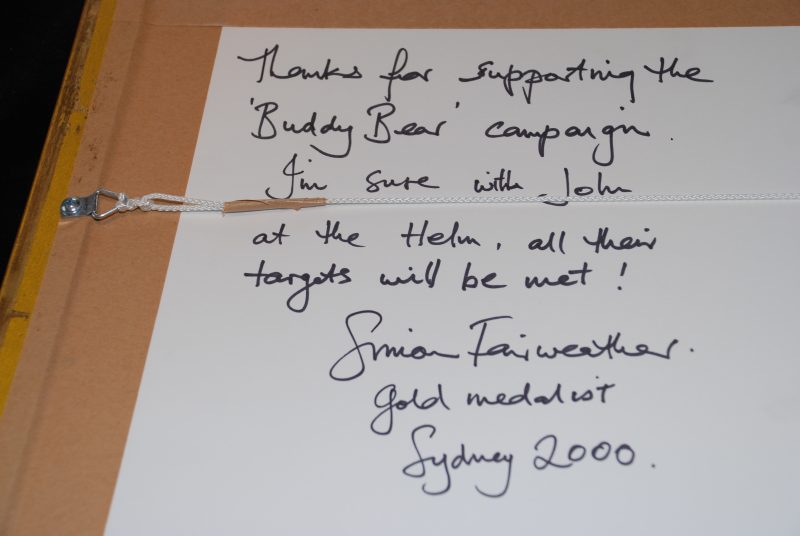 Thanks for supporting the
'Buddy Bear' campaign.
I'm sure with John
at the Helm, all their
targets will be met!
Simon Fairweather.
gold medalist
Sydney 2000.